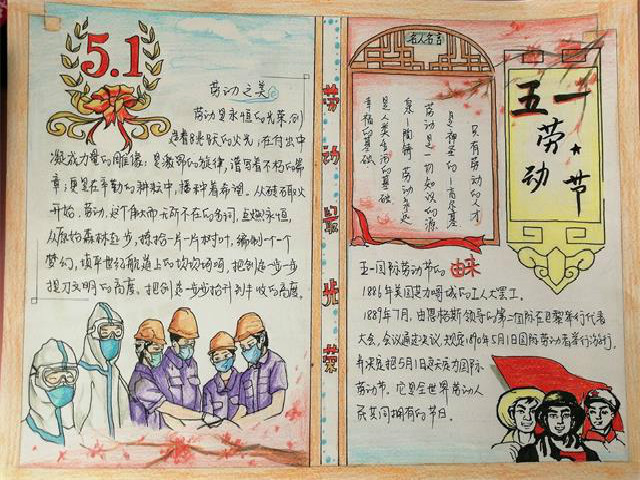 5.1
劳动之美
劳动是永恒的光荣,例
凝成力量的雕像;是激昂的旋律,谱写着不朽的篇
章;更是在辛勤的耕耘中,播种着希望。从钻石取火
开始,劳动,这个伟大而无所不在的名词,
从原始森林起步,拣拾一片一片树叶,编制一个一个
梦幻,填平世纪航道上的坎坎坷坷,把创造一步一步
提刀文明的高度。把创造一步步抬升到丰收的高度。
劳动最光荣
名人名言
只有劳动的人才
是神圣的—高尔基
劳动是一切知识的源
泉—陶铸 劳动永远
是人类生活的基础
幸福的基础
五一
劳动
节
五一国际劳动节的由来
1886年美国芝加哥城的工人大罢工。
1889年7月,由恩格斯领导的第二国际在巴黎举行代表
大会,会议通过决议,规定1890年5月1日国际劳动者举行游行,
并决定把5月1日这天定为国际
劳动节。它是全世界劳动人
民共同拥有的节日。